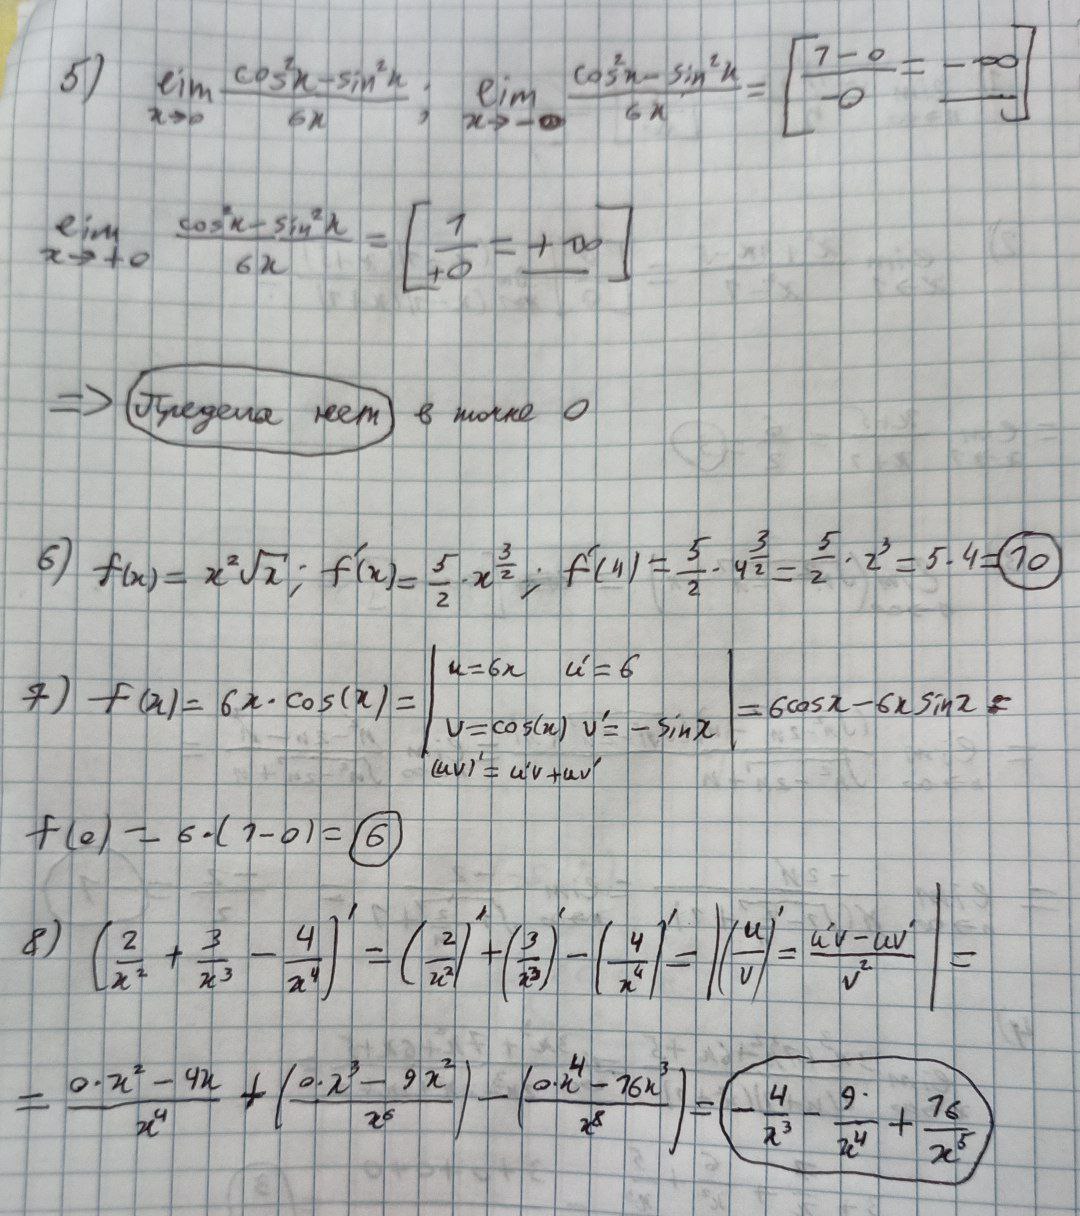 5) lim x→0 (cos²x − sin²x)/(6x); lim x→−0 (cos²x − sin²x)/(6x) = [(1 − 0)/(−0) = −∞]
lim x→+0 (cos²x − sin²x)/(6x) = [1/(+0) = +∞]
=> Предела нет в точке 0
6) f(x) = x²√x; f'(x) = 5/2 · x^(3/2); f'(4) = 5/2 · 4^(3/2) = 5/2 · 2³ = 5·4 = 10
7) f(x) = 6x · cos(x) = | u = 6x u' = 6
v = cos(x) v' = −sinx | = 6cosx − 6x sinx =
(uv)' = u'v + uv'
f(0) = 6·(1−0) = 6
8) (2/x² + 3/x³ − 4/x⁴)' = (2/x²)' + (3/x³)' − (4/x⁴)' = |(u/v)' = (u'v − uv')/v²| =
= (0·x² − 4x)/x⁴ + ((0·x³ − 9x²)/x⁶) − ((0·x⁴ − 16x³)/x⁸) = −4/x³ − 9·/x⁴ + 16/x⁵